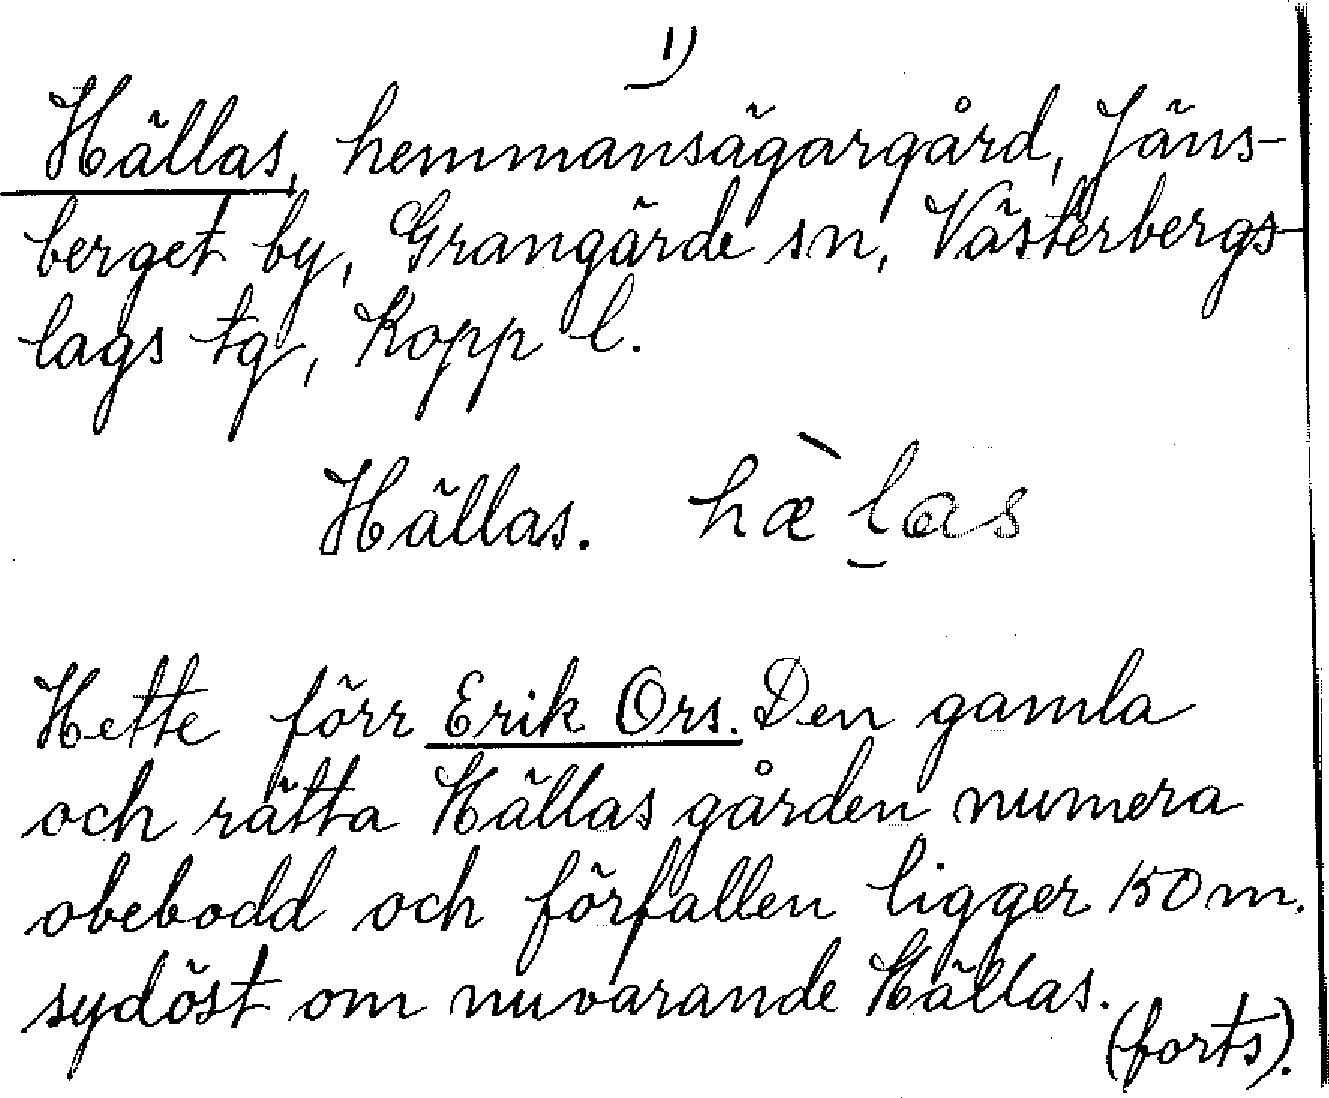 1)
Hällas, hemmansägargård, Jäns-
berget by, Grangärde sn, Västerbergs-
lags tg, Kopp l.
Hällas. hæ̀l̠as
Hette förr Erik Ors. Den gamla
och rätta Hällas gården numera
obebodd och förfallen ligger 150 m.
sydöst om nuvarande Hällas.
(forts).